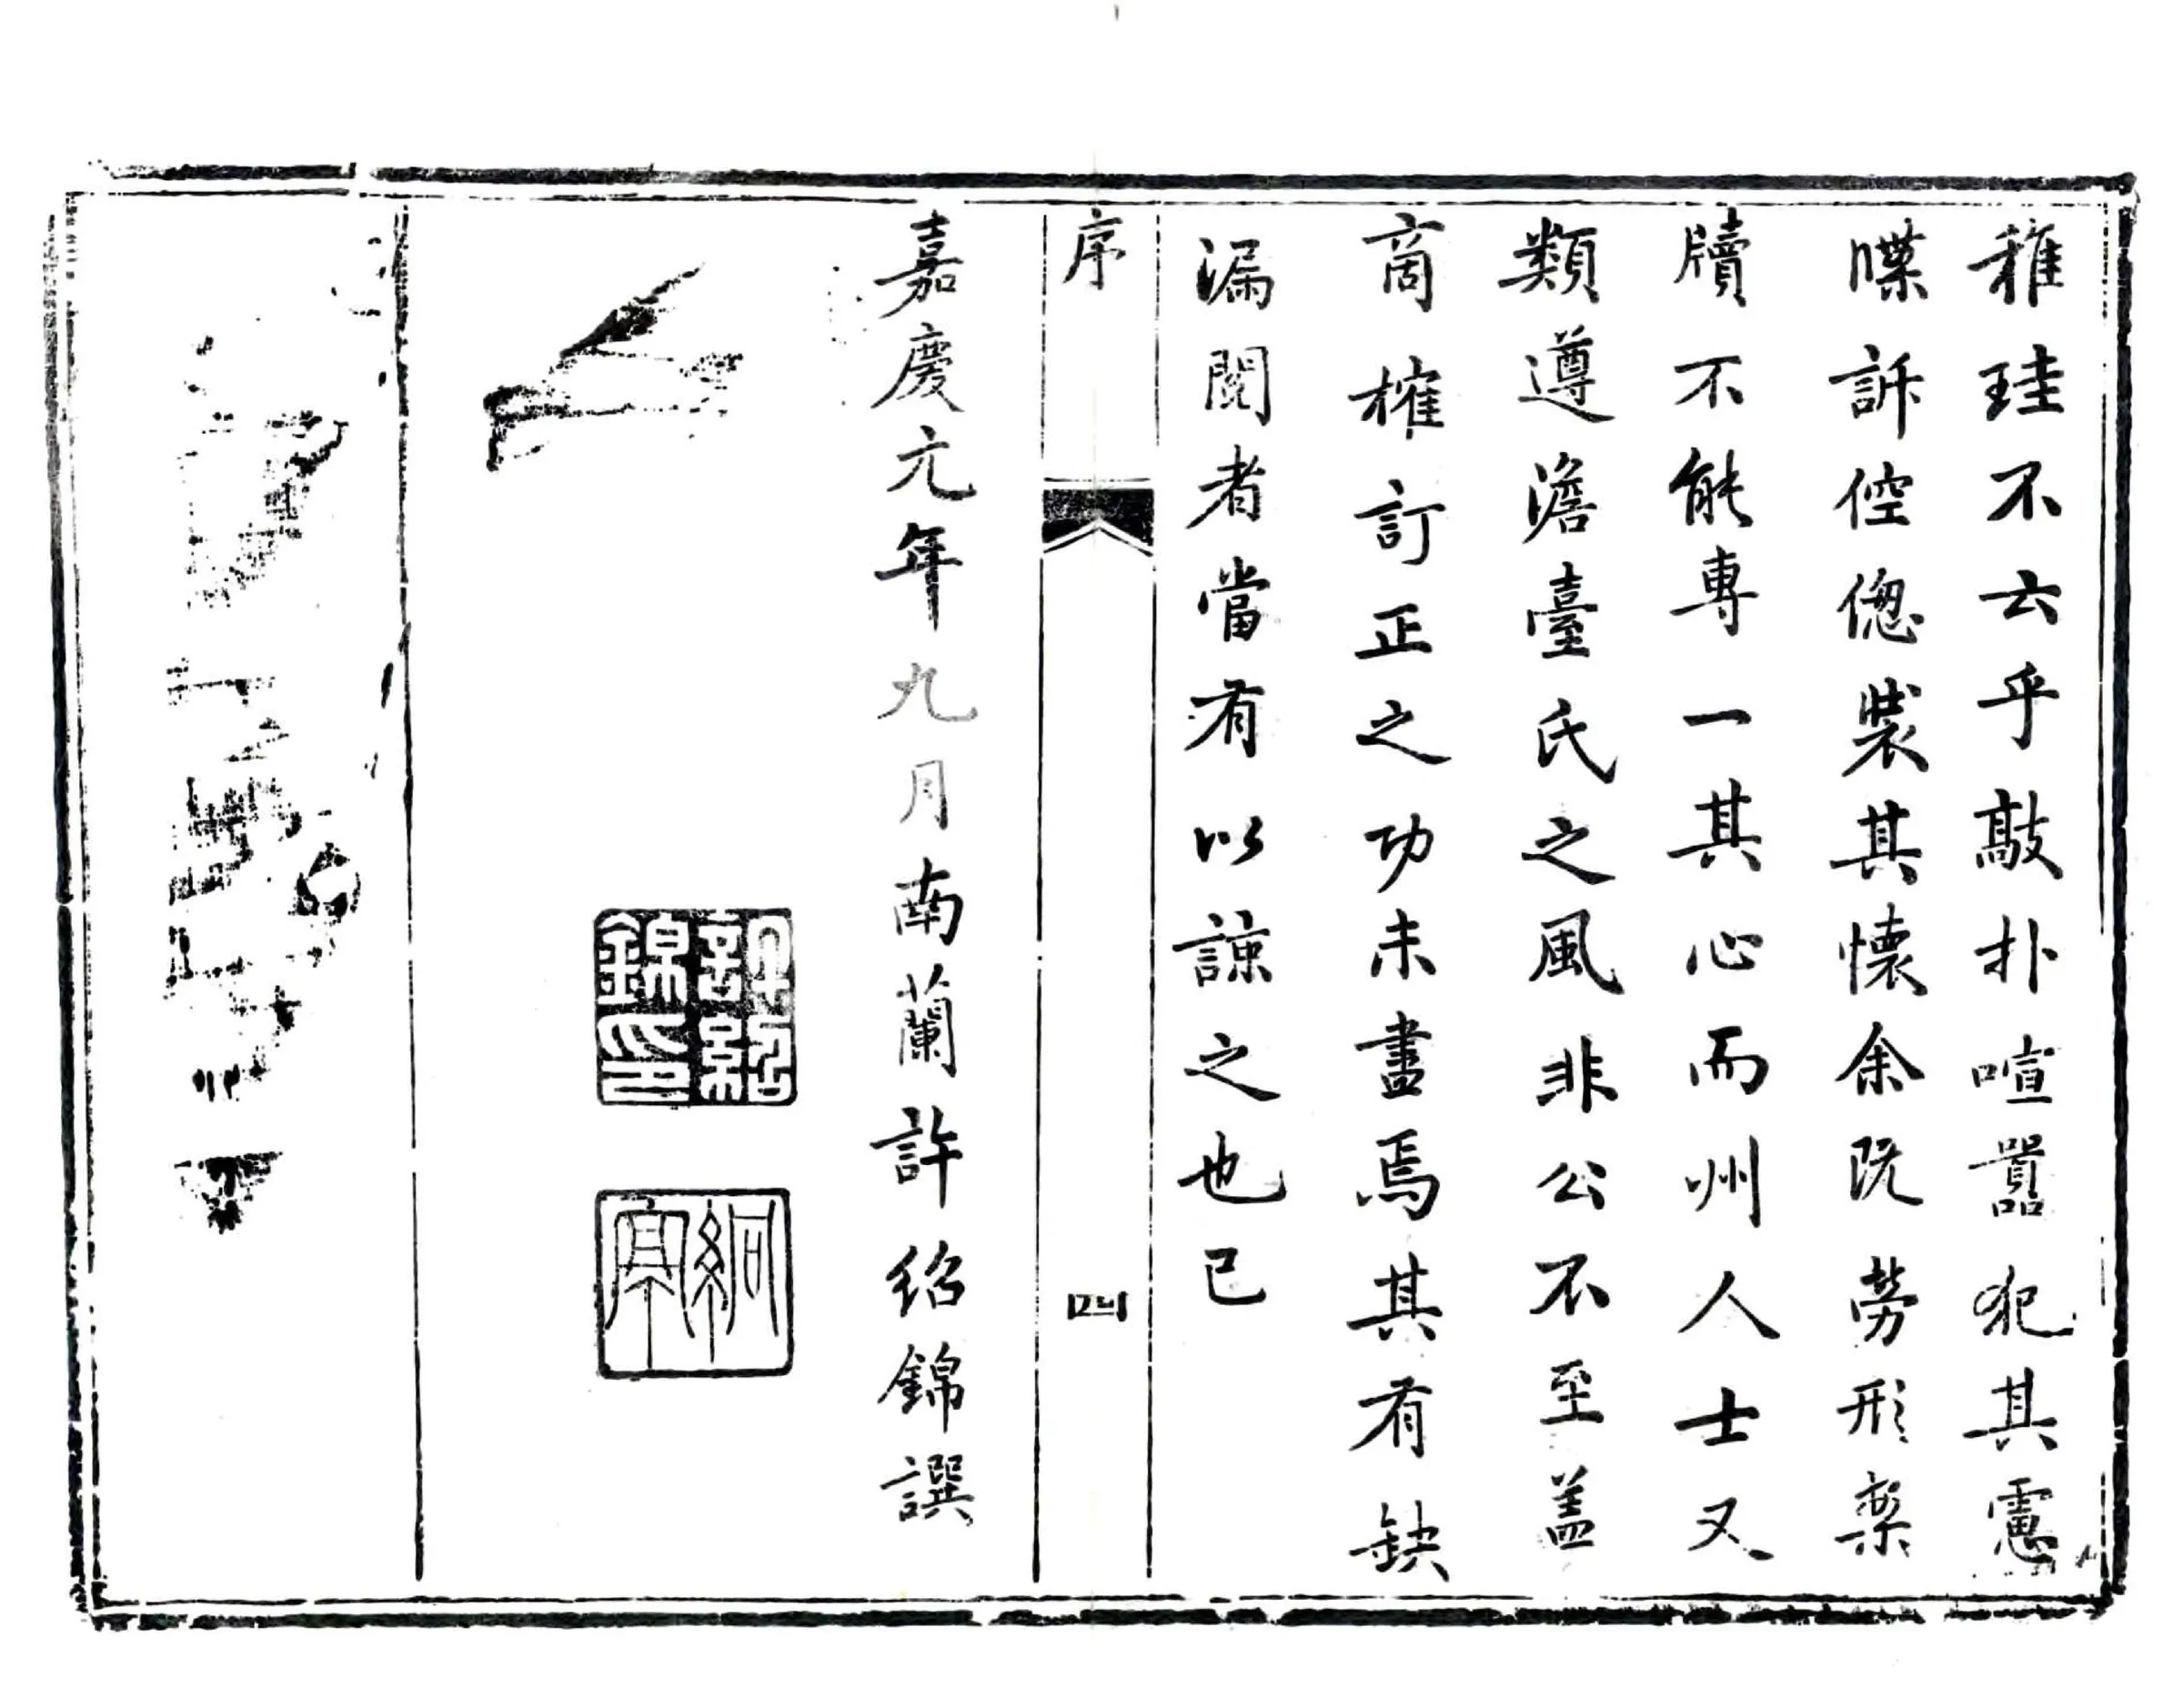 稚珪不云乎敲扑喧囂犯其慮
喋訴倥偬裝其懷余既勞形案
牘不能專一其心而州人士又
類遵澹臺氏之風非公不至蓋
商榷訂正之功未盡焉其有缺
漏閱者當有以諒之也已
序
四
嘉慶元年九月南蘭許紹錦譔
許紹
錦印
絅